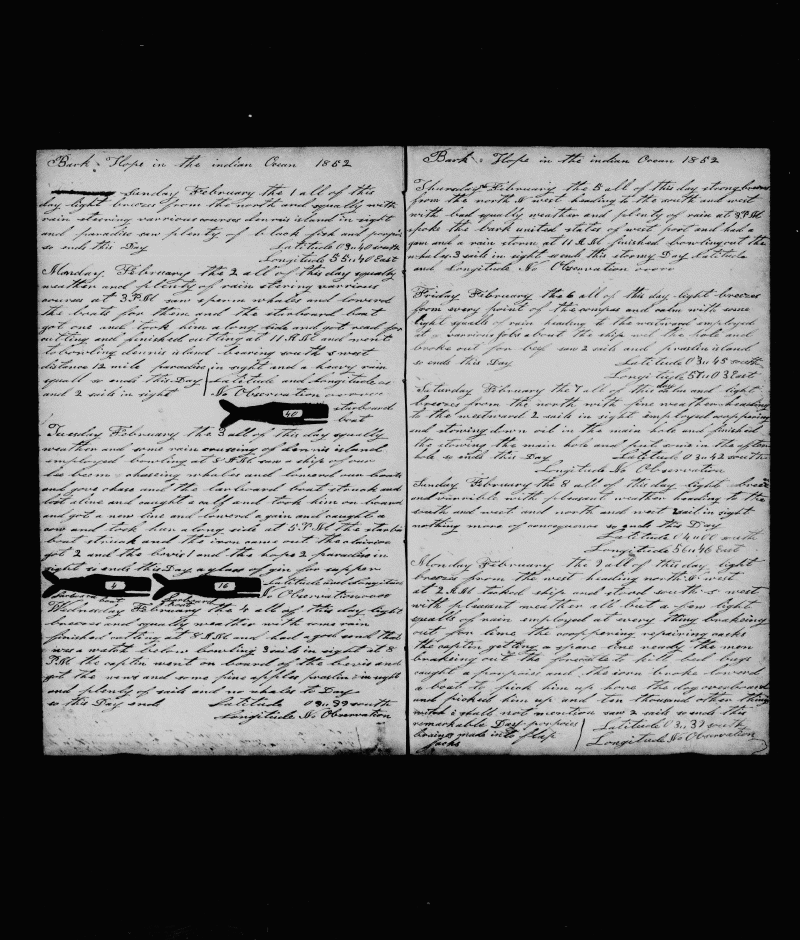 Bark Hope in the indian Ocean 1852
Sunday February the 1 all of this
day light breezes from the north and squally with
rain stering varrious courses dennis island in sight
and paradise saw plenty of black fish and
so ends this Day Latitude 03..40 south
Longitude 55..40 East
Monday February the 2 all of this squally
weather and plenty of rain stering varrious
courses at 3 P.M saw sperm whales and lowered
the boats for them and the starboard boat
got one and took him along side and got read for
cutting and finished cutting at 11 A M and went
to bowling dennis island bearing south s west
distance 12 mile paradise in sight and a heavy rain
squall so ends this Day Latitude and Longitude
and 2 sails in sight No Observation
40 starboard
boat
Tuesday February the 3 all of this day squally
weather and some rain of dennis island
employed bowling at 8 A M saw a ship of our
lee beem chaseing whales and lowered our boats
and gave chase and the larboard boat
lost aline and caught a calf and took him on board
and got a new line and lowerd again and caught a
cow and took her along side at 5 P M the
boat struck and the iron came out
got 2 and the 1 and the hope 2 paradise in
sight so ends this Day a glass of gin for supper
4 16 Latitude and Longitude
No Observation
boat
Wednsday February the 4 all of this day light
breezes and squally weather with some rain
finished cutting at 8 A M and had a good that
was a watch below bowling 3 sails in sight at 8
P M the captin went on board of the and
got the news and some pine apples praslin in sight
and plenty of sails and no whales to Day
so this Day ends Latitude 03..39 south
Longitude No Observation
Bark Hope in the indian Ocean 1852
Thursday February the 5 all of this day strong breeze
from the north N west heading to the south and west
with bad squally weather and plenty of rain at 3 P M
spoke the bark united states of west port and had a
gam and a rain storm at 11 A M finished bowling out the
whale 3 sails in sight so ends this stormy Day Latitude
and Longitude No Observation
Friday February the 6 all of this day light breezes
from every point of the compas and calm with some
light squalls of rain heading to the westward employed
at varrious jobs about the ship wet the hole and
broke out for beef saw 2 sails and praslin island
so ends this Day Latitude 03..45 south
Longitude 57..03 East
Saturday February the 7 all of this day calm and light
breezes from the north with fine weather heading
to the westward 2 sails in sight employed coopering
and stowing down oil in the main hole and finished
the stowing the main hole and put some in the after
hole so ends this Day Latitude 03..42 south
Longitude No Observation
Sunday February the 8 all of this day light breeze
and varrible with pleasant weather heading to the
south and west and north and west sail in sight
nothing more of consequence so ends this Day
Latitude 04..00 south
Longitude 56..46 East
Monday February the 9 all of this day light
breezes from the west heading north N west
at 2 A M tacked ship and stood south s west
with pleasant weather all but a few light
squalls of rain employed at every thing brakeing
out for lime the coopering repairing casks
the captin getting a spare line ready the men
brakeing out the forecastle to kill bed bugs
caught a porpoise and the iron broke lowerd
a boat to pick him up hove the dog overboard
and picked him up and ten thousand other things
which i shall not mention saw 2 sails so ends this
remarkable Day porpoises Latitude 03..39 south
brains made into flap Longitude No Observation
jacks